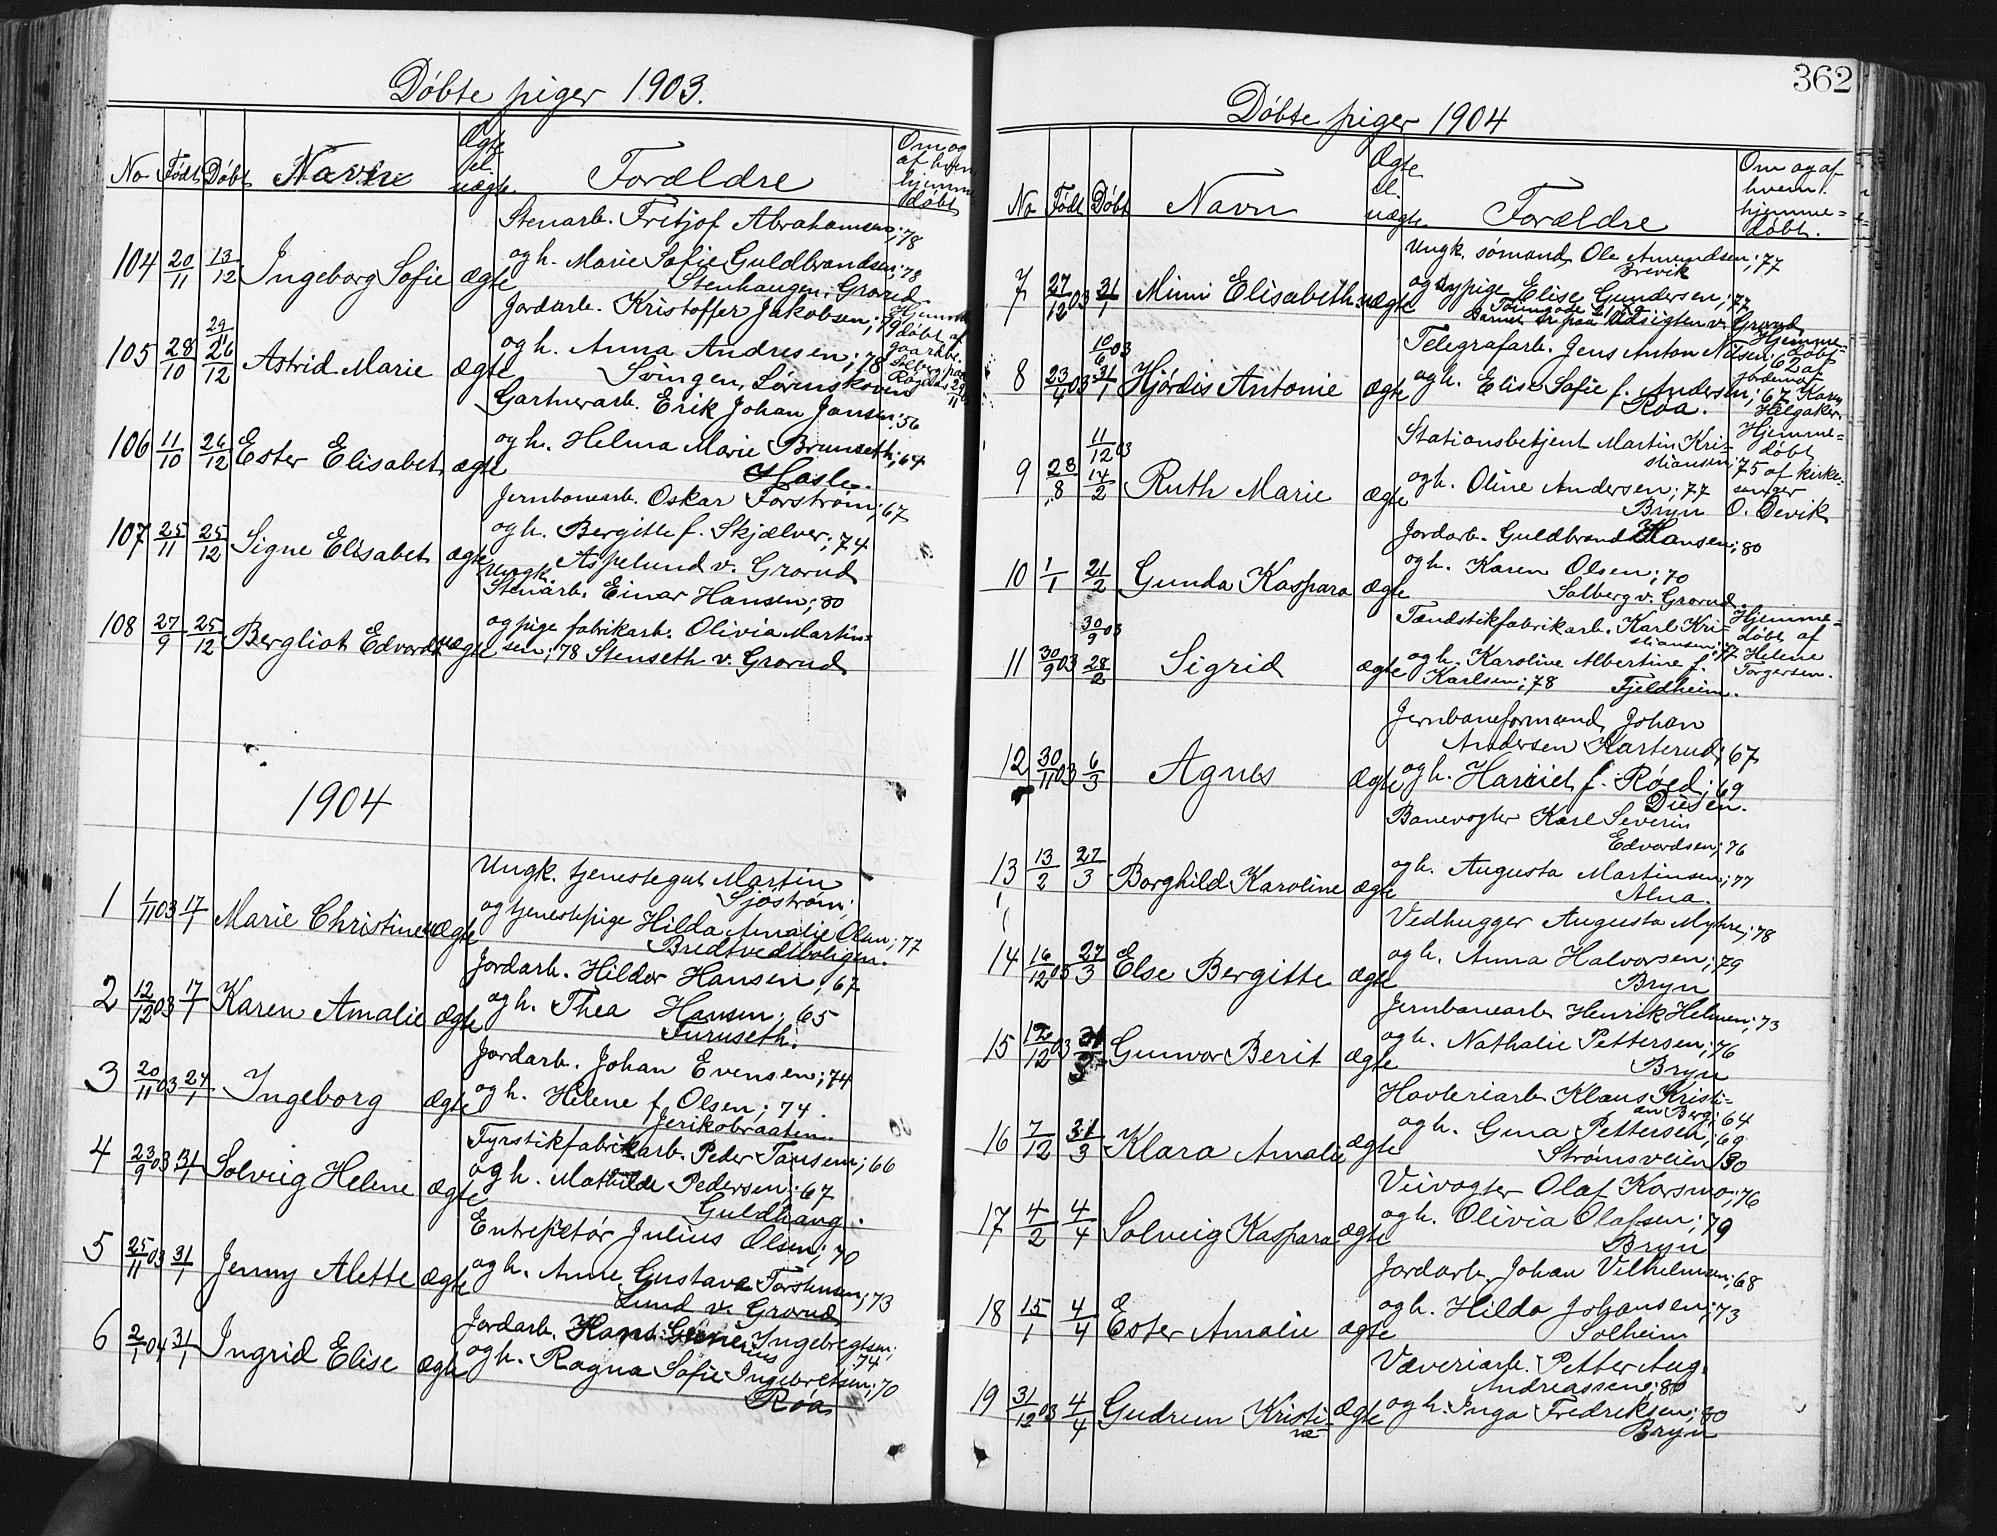 Døbte piger 1903.
No Født Døbt Navn Ægte el. uægte Forældre Om og af hvem hjemmedøbt
Stenarb. Fritjof Abrahamsen; 78
104 20/11 13/12 Ingeborg Sofie ægte og h. Marie Sofie Guldbrandsen; 78
Stenhaugen, Grorud
Jordarb. Kristoffer Jakobsen; 79 Hjemmedøbt af
105 28/10 26/12 Astrid Marie ægte og h. Anna Andresen; 78
Svingen, Lørenskoven
Gartnerarb. Erik Johan Jansen; 56
106 11/10 26/12 Ester Elisabet ægte og h. Helma Marie Brunseth; 64
Hasle.
Jernbanearb. Oskar Forstrøm; 67
107 25/11 25/12 Signe Elisabet ægte og h. Bergitte f. Skjælver; 74
Aspelund v. Grorud
Ungk.
Stenarb. Einar Hansen; 80
108 27/9 25/12 Bergliot Edvarda uægte og pige fabrikarb. Olivia Martin=
sen; 78 Stenseth v. Grorud
1904
Ungk. tjenestegut Martin
Sjøstrøm;
1 1/11 03 17/1 Marie Christine uægte og tjenestepige Hilda Amalie Olsen; 77
Bredtvedtboligen.
Jordarb. Hildor Hansen, 67
2 12/12 03 17/1 Karen Amalie ægte og h. Thea Hansen; 65
Furuseth.
Jordarb. Johan Evensen; 74
3 20/11 03 24/1 Ingeborg ægte og h. Helene f. Olsen; 74.
Jerikobraaten.
Fyrstikfabrikarb. Peder Tansem; 66
4 23/9 03 31/1 Solveig Helene ægte og h. Mathilde Pedersen; 67
Guldhaug.
Entrepretør Julius Olsen; 70
5 25/11 03 31/1 Jenny Alette ægte og h. Anne Gustava Torstensen; 73
Lund v. Grorud
Jordarb. Hans Ingebregtsen;
74
6 2/1 04 31/1 Ingrid Elise ægte og h. Ragna Sofie Ingebretsen; 70
Røa
362
Døbte piger 1904
No Født Døbt Navn Ægte el. uægte Forældre Om og af hvem hjemme=døbt.
Ungk. sømand Ole Amundsen; 77
Brevik
7 27/12 03 31/1 Mimi Elisabeth uægte og sypige Elise Gundersen; 77
Barnet er paa Udsigten v. Grorud
Telegrafarb. Jens Anton Nilsen; 62 Hjemme=døbt af
10/6 03
8 23/4 03 31/1 Hjørdis Antonie ægte og h. Elise Sofie f. Andersen; 67 jordemor Karen Helgaker
Røa.
Stationsbetjent Martin Kri= Hjemme=
11/12 03
stiansen; 75 døbt af kirke=
9 28/8 14/2 Ruth Marie ægte og h. Oline Andersen; 77 sanger
Bryn O. Devik
Jordarb. Guldbrand Hansen; 80
10 1/1 21/2 Gunda Kaspara ægte og h. Karen Olsen; 70
Solberg v. Grorud
Tændstikfabrikarb. Karl Kri= Hjemme=
30/9 03
stiansen; 77 døbt af
11 30/9 03 28/2 Sigrid ægte og h. Karoline Albertine f. Helene
Karlsen; 78 Fjeldheim. Torgersen.
Jernbaneformand Johan
Andersen Karterud; 67
12 30/11 03 6/3 Agnes ægte og h. Harriet f. Røed; 69
Diesen.
Banevogter Karl Severin
Edvardsen; 76
13 13/2 27/3 Borghild Karoline ægte og h. Augusta Martinsen; 77
Alna.
Vedhugger Augusta Myhre; 78
14 16/12 03 27/3 Else Bergitte ægte og h. Anna Halvorsen; 79
Bryn
Jernbanearb Henrik Helmen; 73
15 12/12 03 31/3 Gunvor Berit ægte og h. Nathalie Pettersen; 76
Bryn
Høvleriarb Klaus Kristi=
an Berg; 64
16 7/12 31/3 Klara Amalie ægte og h. Gina Pettersen; 69
Strømsveien 130
Veivogter Olaf Korsmo; 76
17 4/2 4/4 Solveig Kaspara ægte og h. Olivia Olafsen; 79
Bryn
Jordarb. Johan Vilhelmsen; 68
18 15/1 4/4 Ester Amalie ægte og h. Hilda Johansen; 73
Solheim
Væveriarb. Petter Aug.
Andreassen; 80
19 31/12 03 4/4 Gudrun Kristi= ægte og h. Inga Fredriksen; 80
ne Bryn